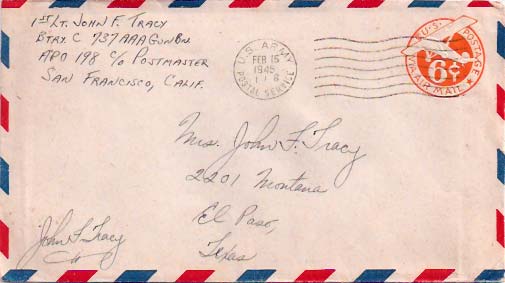 1ST LT. JOHN F. TRACY
BTRY. C 737 AAA GUN BN
APO 198 C/O POSTMASTER
SAN FRANCISCO, CALIF.
U.S. ARMY
FEB 15
1945
POSTAL SERVICE
U.S. POSTAGE
6¢
VIA AIR MAIL
Mrs. John F. Tracy
2201 Montana
El Paso,
Texas
John F Tracy